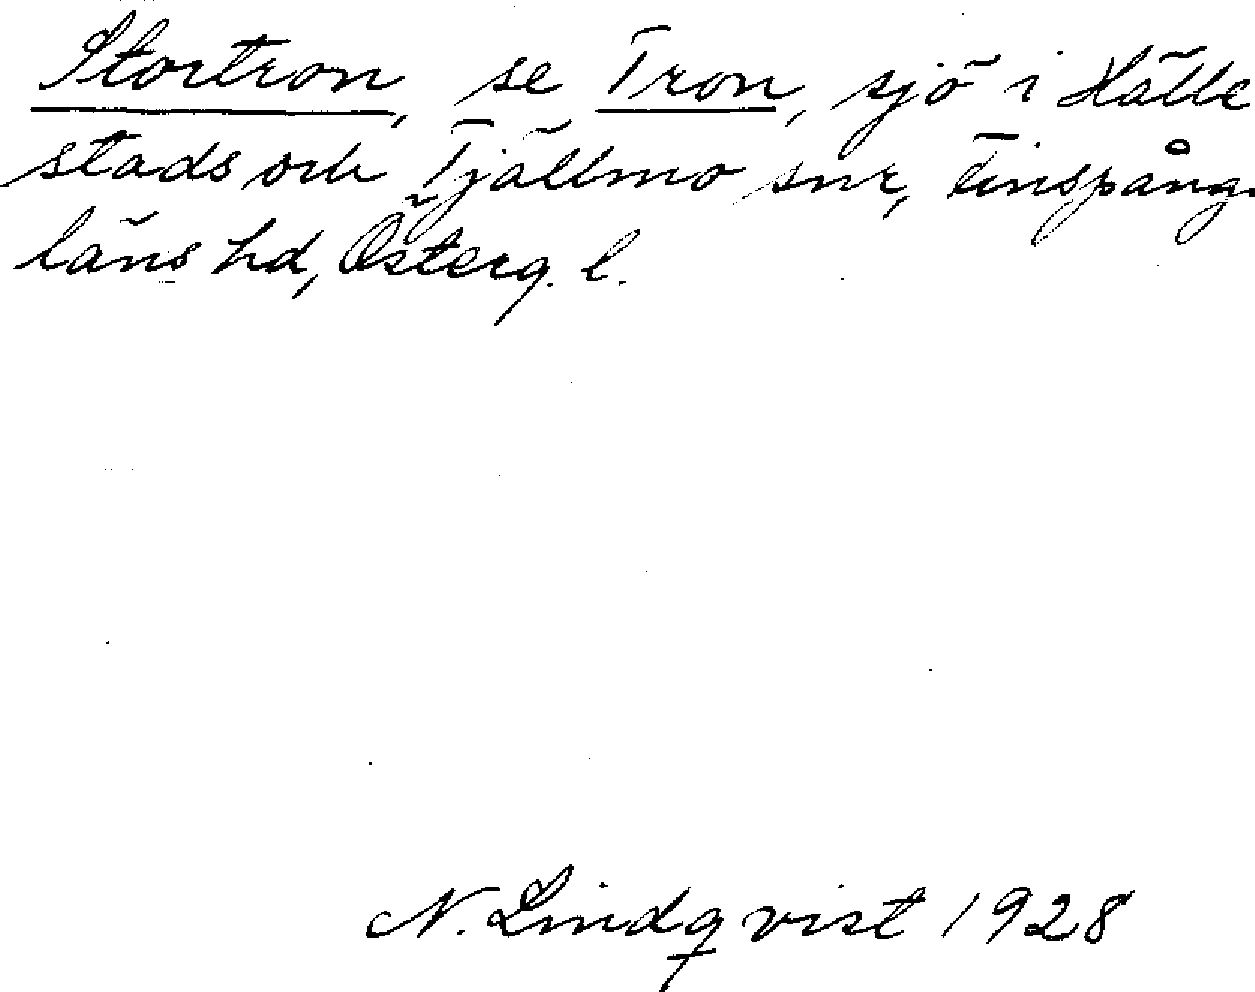 Stortron, se Tron, sjö i Hälle
stads och Tjällmo snr, Finspång
läns hd, Österg. l.
N. Lindqvist 1928